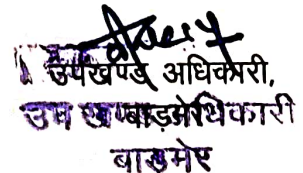 उपखण्ड अधिकारी,
उप ख बाड़मेधिकारी
बाडमेर